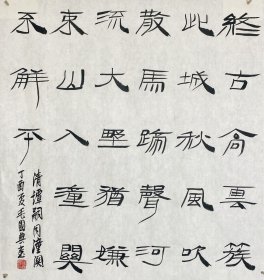 終古高雲簇
此城秋風吹
散馬蹄聲河
流大野猶嫌
束山入潼關
不解平
清譚嗣同潼關
丁酉夏毛國典書